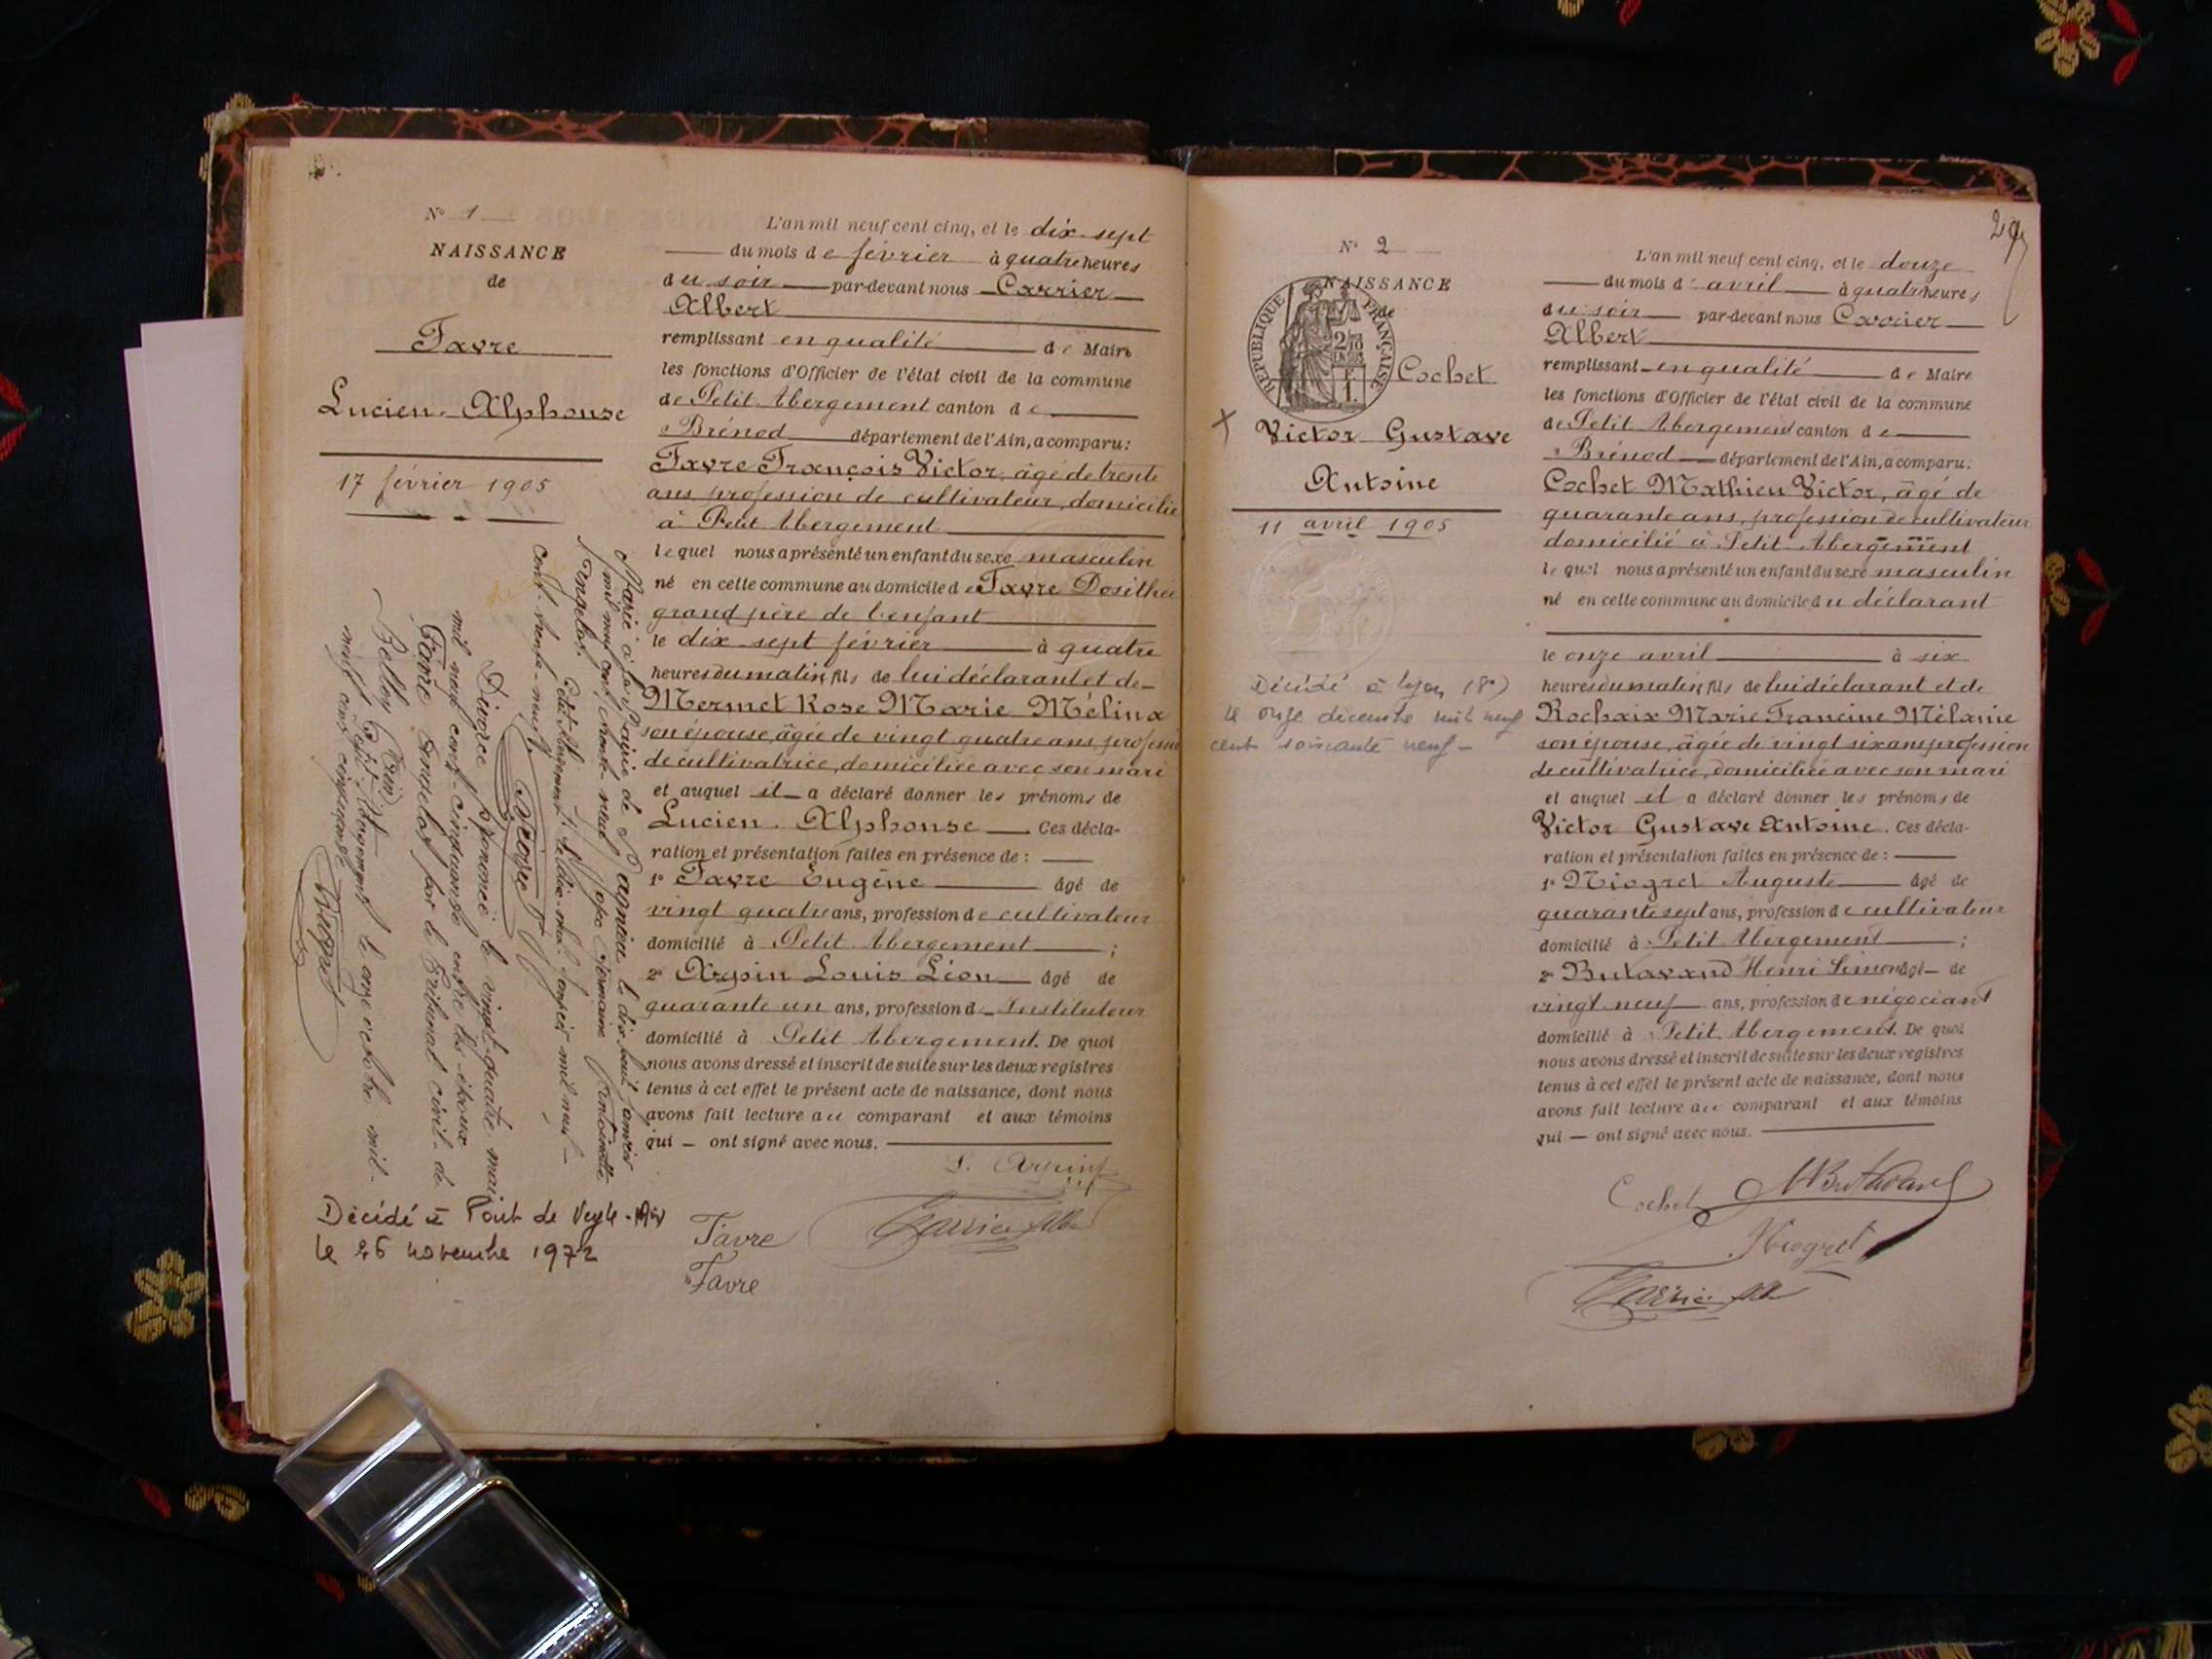 N° 1
NAISSANCE
de
Favre
Lucien Alphonse
17 février 1905
L'an mil neuf cent cinq, et le dix-sept
du mois de février à quatre heures
du soir par-devant nous Carrier
Albert
remplissant en qualité de Maire
les fonctions d'Officier de l'état civil de la commune
de Petit Abergement canton de
Brénod département de l'Ain, a comparu:
Favre François Victor, âgé de trente
ans profession de cultivateur, domicilié
à Petit Abergement
lequel nous a présenté un enfant du sexe masculin
né en cette commune au domicile de Favre Dosithée
grand père de l'enfant
le dix sept février à quatre
heures du matin, fils de lui déclarant et de
Mermet Rose Marie Mélina
son épouse, âgée de vingt quatre ans, profession
de cultivatrice, domiciliée avec son mari
et auquel il a déclaré donner les prénoms de
Lucien Alphonse Ces décla-
ration et présentation faites en présence de :
1° Favre Eugène âgé de
vingt quatre ans, profession de cultivateur
domicilié à Petit Abergement ;
2° Arpin Louis Léon âgé de
quarante un ans, profession d Instituteur
domicilié à Petit Abergement. De quoi
nous avons dressé et inscrit de suite sur les deux registres
tenus à cet effet le présent acte de naissance, dont nous
avons fait lecture au comparant et aux témoins
qui ont signé avec nous.
L. Arpin
Favre
Carrier Alb
Favre
Marié à la Mairie de le dix huit janvier
mil neuf cent trente-neuf avec Germaine Antoinette
Pangelas.
Petit Abergement, le janvier mil neuf
cent trente-neuf.
Divorce prononcé le vingt-quatre mai
mil neuf cent cinquante entre les époux
Favre Pangelas par le Tribunal civil de
Belley (Ain)
Petit Abergement le onze octobre mil
neuf cent cinquante
Décédé à Pont de Veyle - Ain
le 26 novembre 1972
29
N° 2
NAISSANCE
de
REPUBLIQUE FRANÇAISE
Cochet
Victor Gustave
Antoine
11 avril 1905
Décédé à Lyon (8°)
le onze décembre mil neuf
cent soixante neuf -
L'an mil neuf cent cinq, et le douze
du mois d'avril à quatre heures
du soir par-devant nous Carrier
Albert
remplissant en qualité de Maire
les fonctions d'Officier de l'état civil de la commune
de Petit Abergement canton de
Brénod département de l'Ain, a comparu:
Cochet Mathieu Victor, âgé de
quarante ans, profession de cultivateur
domicilié à Petit Abergement
lequel nous a présenté un enfant du sexe masculin
né en cette commune au domicile du déclarant
le onze avril à six
heures du matin, fils de lui déclarant et de
Rochaix Marie Francine Mélanie
son épouse, âgée de vingt six ans profession
de cultivatrice, domiciliée avec son mari
et auquel il a déclaré donner les prénoms de
Victor Gustave Antoine. Ces décla-
ration et présentation faites en présence de :
1° Niogret Auguste âgé de
quarante sept ans, profession de cultivateur
domicilié à Petit Abergement ;
2° Butavand Henri Simon âgé de
vingt neuf ans, profession de négociant
domicilié à Petit Abergement. De quoi
nous avons dressé et inscrit de suite sur les deux registres
tenus à cet effet le présent acte de naissance, dont nous
avons fait lecture au comparant et aux témoins
qui — ont signé avec nous.
Cochet HButavand
Niogret
Carrier Alb